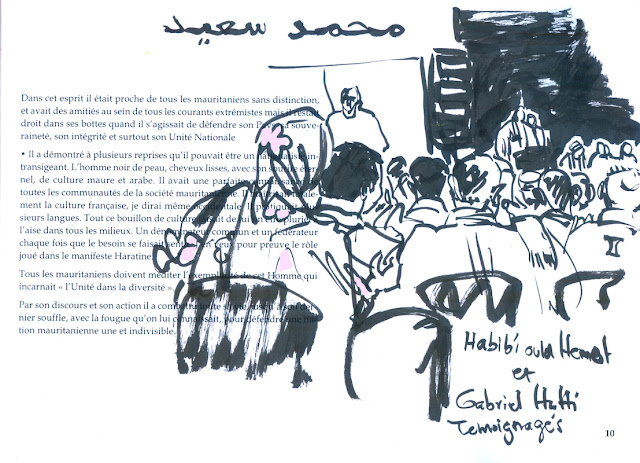 محمد سعيد
Dans cet esprit il était proche de tous les mauritaniens sans distinction,
et avait des amitiés au sein de tous les courants extrémistes mais il restait
droit dans ses bottes quand il s'agissait de défendre son Pays, sa souve-
raineté, son intégrité et surtout son Unité Nationale
• Il a démontré à plusieurs reprises qu'il pouvait être un in-
transigeant. L'homme noir de peau, cheveux lisses, avec son sourire éter-
nel, de culture maure et arabe. Il avait une parfaite connaissance de
toutes les communautés de la société mauritanienne. Il
ment la culture française, je dirai même occidentale. Il pratiquait plu-
sieurs langues. Tout ce bouillon de culture faisait de lui un être pluriel
l'aise dans tous les milieux. Un dénominateur commun et un fédérateur
chaque fois que le besoin se faisait sentir. J'en veux pour preuve le rôle
joué dans le manifeste Haratine.
Tous les mauritaniens doivent méditer l'exemplarité de cet Homme qui
incarnait « l'Unité dans la diversité ».
Par son discours et son action il a combattu toute sa vie, jusqu'à son der-
nier souffle, avec la fougue qu'on lui connaissait, pour défendre une na-
tion mauritanienne une et indivisible.
Habibi ould Hemet
et
Gabriel Hatti
Temoignagés
10